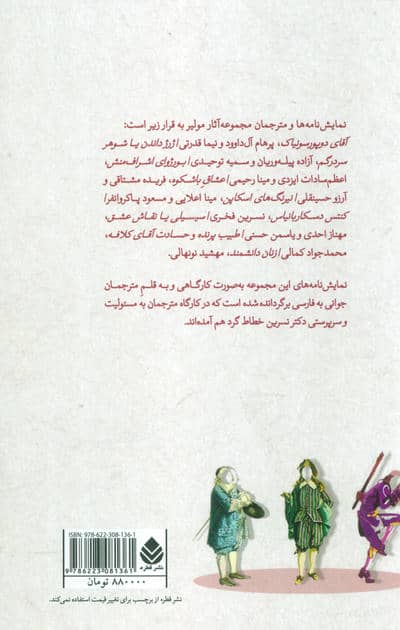 نمایش‌نامه‌ها و مترجمان مجموعه‌آثار مولیر به قرار زیر است:
آقای دوپورسونیاک، پرهام آل‌داوود و نیما قدرتی/ ژرژ داندَن یا شوهر
سردرگم، آزاده پیله‌وریان و سمیه توحیدی/ بورژوای اشراف‌منش،
اعظم‌سادات ایزدی و مینا رحیمی/ عشاق باشکوه، فریده مشتاقی و
آرزو حسینقلی/ نیرنگ‌های اسکاپن، مینا اعلایی و مسعود پاکروانفر/
کنتس دسکاربانیاس، نسرین فخری/ سیسیلی یا نقاش عشق،
مهناز احدی و یاسمن حسنی/ طبیب پرنده و حسادت آقای کلافه،
محمدجواد کمالی/ زنان دانشمند، مهشید نونهالی.
نمایش‌نامه‌های این مجموعه به‌صورت کارگاهی و به قلمِ مترجمان
جوانی به فارسی برگردانده شده است که در کارگاه مترجمان به مسئولیت
و سرپرستی دکتر نسرین خطاط گرد هم آمده‌اند.
ISBN: 978-622-308-136-1
9 786223 081361
۸۸۰۰۰۰ تومان
نشر قطره
نشر قطره از برچسب برای تغییر قیمت استفاده نمی‌کند.